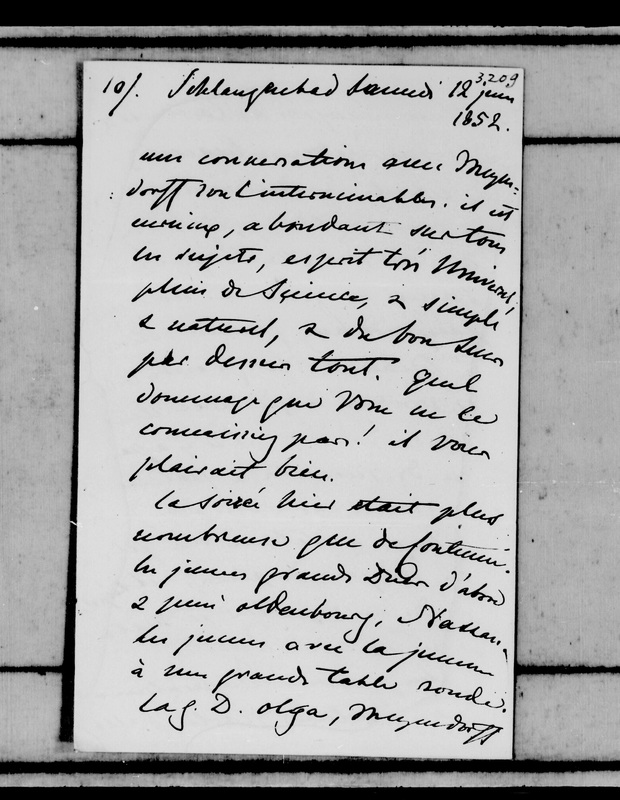 3209
10/. Schlangenbad Samedi 12 juin
1852.
mes conversations avec Meyen-
dorff sont interminables. il est
curieux, abondant sur tous
les sujets, esprit très universel,
plein de Science, & simple
& naturel, & du bon sens
par dessus tout. quel
dommage que vous ne le
connaissiez pas! il vous
plairait bien.
la soirée hier était plus
nombreuse que de coutume.
les jeunes grands Ducs d'abord
& puis oldenbourg, Nassau.
les jeunes avec la jeune
à une grande table ronde.
la g. D. olga, Meyendorff